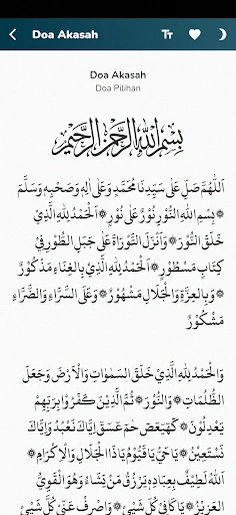 Doa Akasah
Doa Akasah
Doa Pilihan
بِسْمِ اللهِ الرَّحْمٰنِ الرَّحِيْمِ
اَللّٰهُمَّ صَلِّ عَلٰى سَيِّدِنَا مُحَمَّدٍ وَعَلٰى اٰلِهِ وَصَحْبِهِ وَسَلَّمَ
۞بِسْمِ اللهِ النُّوْرِ نُوْرٌ عَلٰى نُوْرٍ۞ اَلْحَمْدُ لِلهِ الَّذِيْ
خَلَقَ النُّوْرَ۞وَاَنْزَلَ التَّوْرَاةَ عَلٰى جَبَلِ الطُّوْرِ فِيْ
كِتَابٍ مَسْطُوْرٍ۞اَلْحَمْدُ لِلهِ الَّذِيْ بِالْغِنَاءِ مَذْكُوْرٌ
۞وَبِالْعِزَّةِ وَالْجَلَالِ مَشْهُوْرٌ۞وَعَلَى السَّرَّاءِ وَالضَّرَّاءِ
مَشْكُوْرٌ
وَالْحَمْدُ لِلهِ الَّذِيْ خَلَقَ السَّمٰوَاتِ وَالْاَرْضَ وَجَعَلَ
الظُّلُمَاتِ۞وَالنُّوْرَ۞ثُمَّ الَّذِيْنَ كَفَرُوْا بِرَبِّهِمْ
يَعْدِلُوْنَ۞كٓهٰيٰعٓصٓ حٰمٓ عٓسٓقٓ اِيَّاكَ نَعْبُدُ وَاِيَّاكَ
نَسْتَعِيْنُ۞يَا حَيُّ يَا قَيُّوْمُ يَا ذَا الْجَلَالِ وَالْاِكْرَامِ۞
اَللهُ لَطِيْفٌ بِعِبَادِهِ يَرْزُقُ مَنْ يَشَاءُ وَهُوَ الْقَوِيُّ
الْعَزِيْزُ۞يَا كَافِيَ كُلِّ شَيْئٍ۞وَاصْرِفْ عَنِّيْ كُلَّ شَيْئٍ